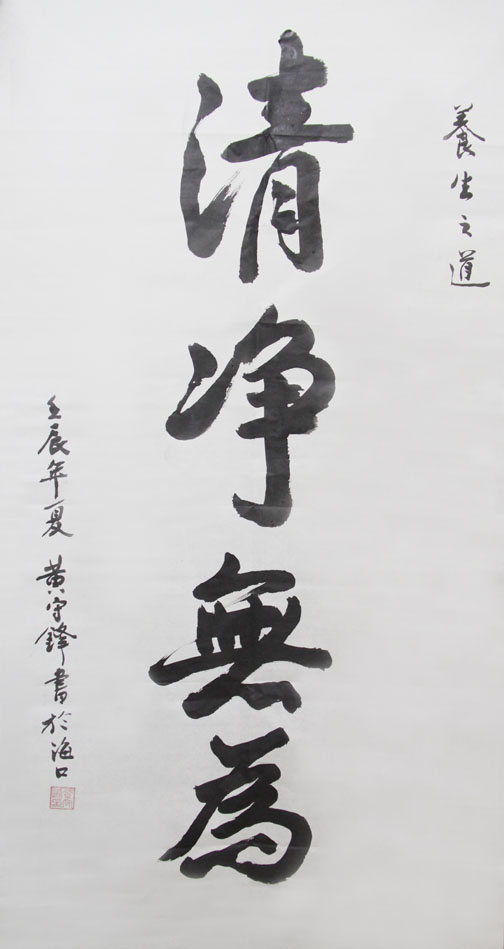 養生之道
清净無為
壬辰年夏 黄守鋒書於海口